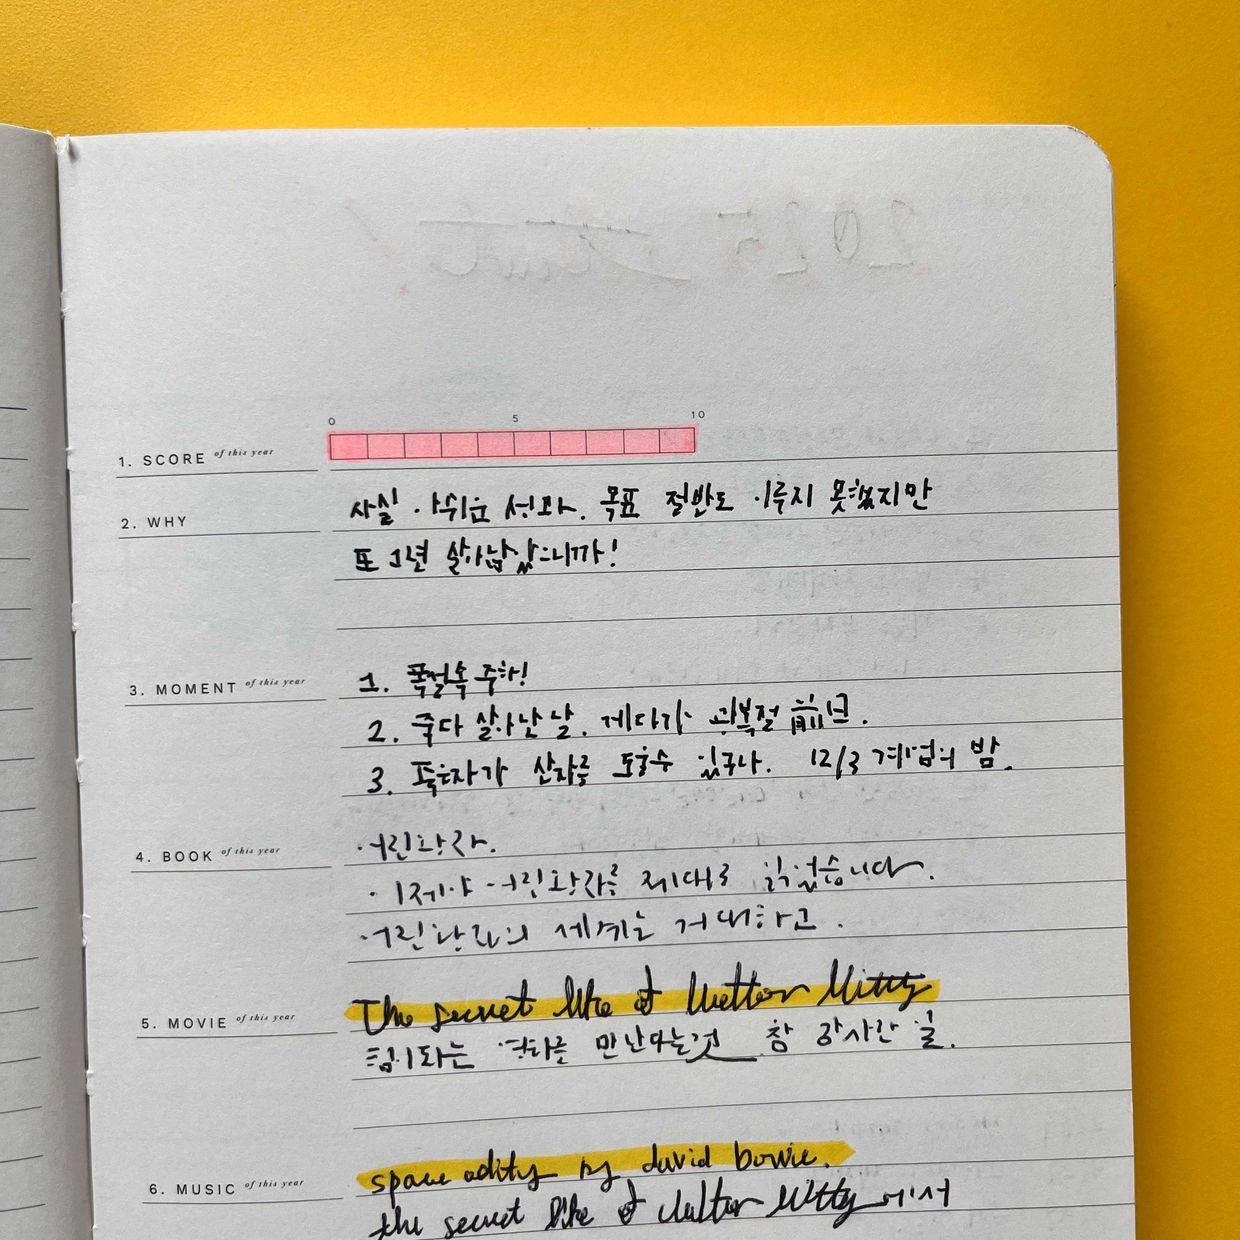 0 5 10
1. SCORE of this year
2. WHY
사실 아쉬운 성과. 목표 절반도 이루지 못했지만
또 1년 살아남았으니까!
3. MOMENT of this year
1. 폭설속 주행!
2. 죽다 살아난 날. 게다가 광복절 前日.
3. 독재자가 산자를 도울수 있구나. 12/3 계엄의 밤.
4. BOOK of this year
어린왕자.
이제야 어린왕자를 제대로 읽었습니다.
어린왕자의 세계는 거대하고.
5. MOVIE of this year
The secret life of Walter Mitty
힘이되는 영화를 만난다는것 참 감사한 일.
6. MUSIC of this year
space oddity by david bowie.
the secret life of Walter Mitty에서